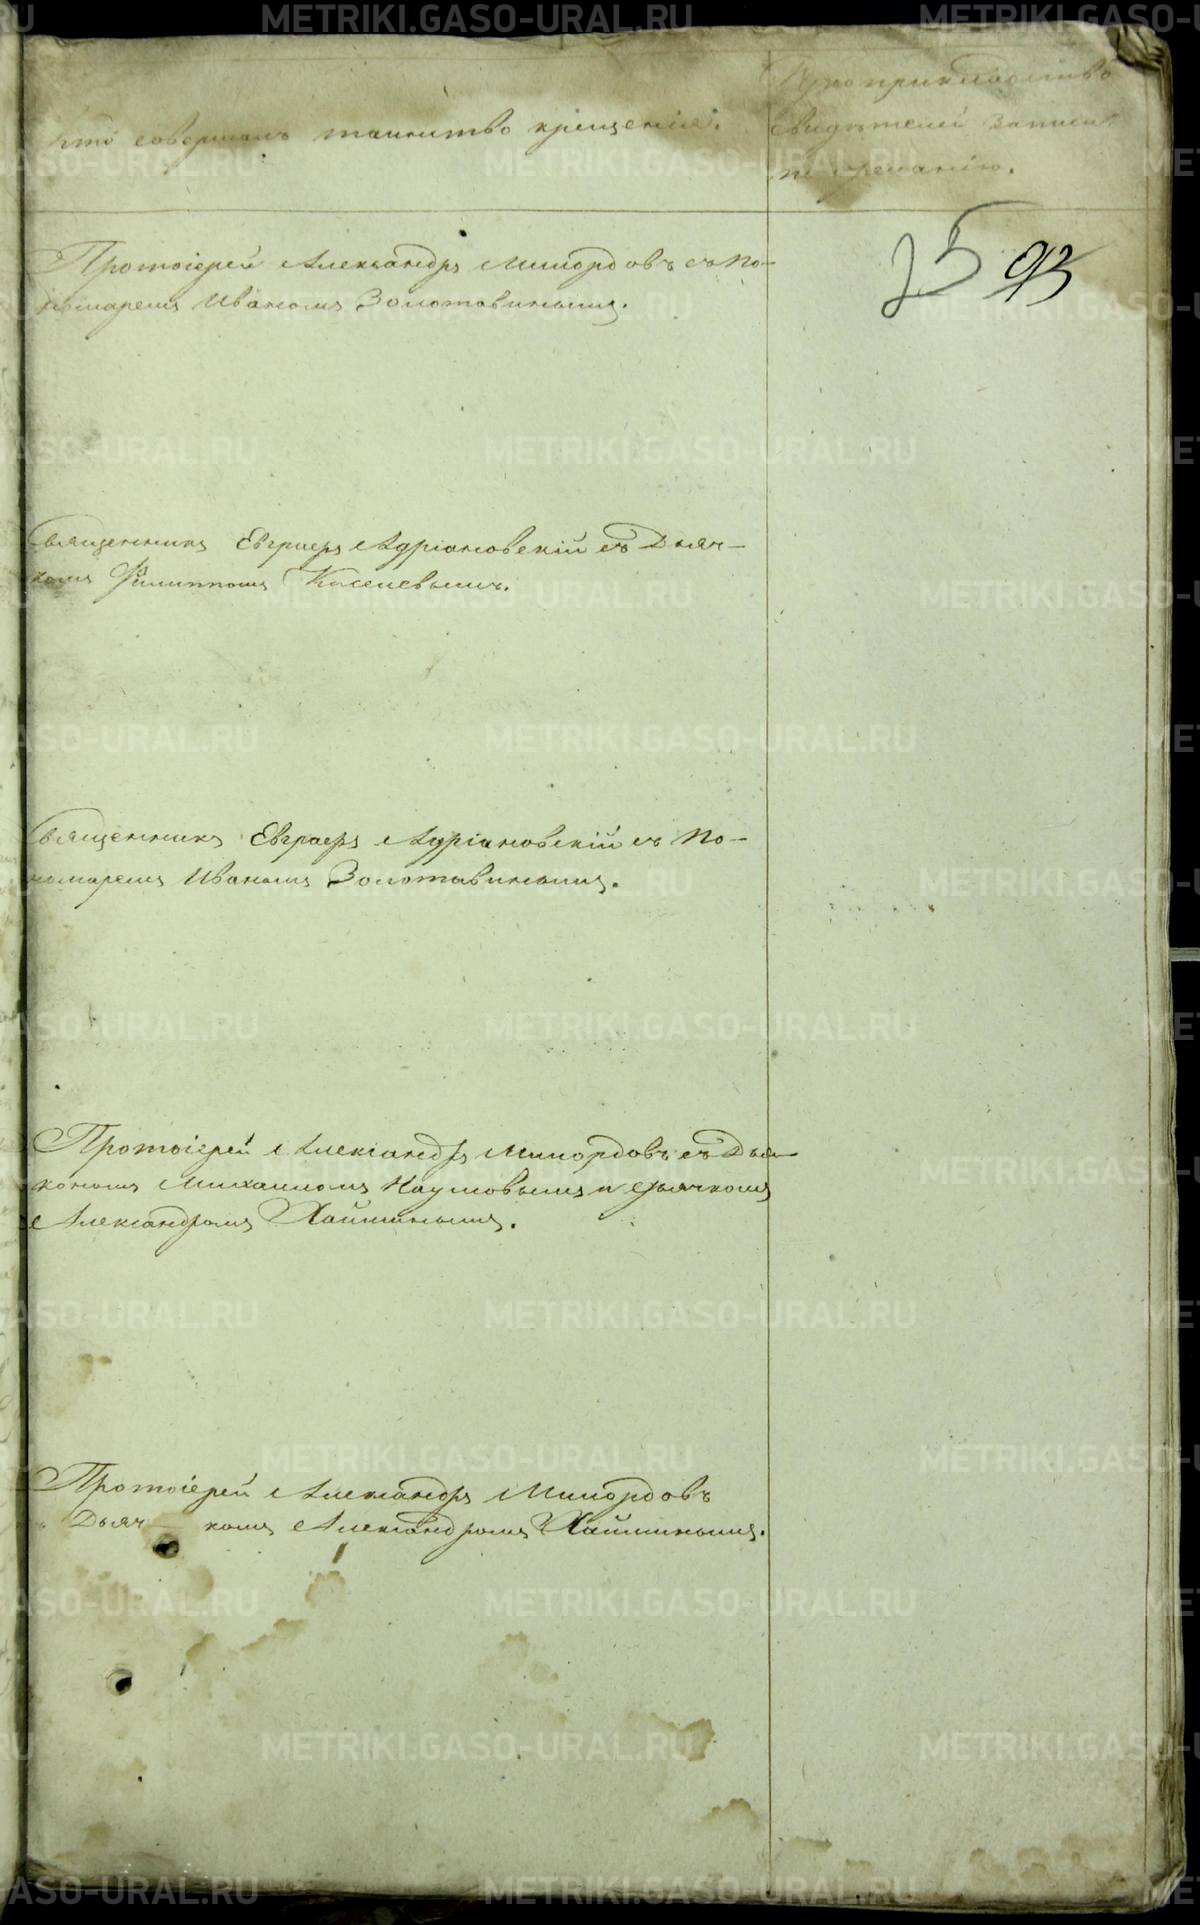 Кто совершалъ таинство крещенія.
Рукоприкладство
свидѣтелей записи
по желанію.
93
Протоіерей Александръ Милордовъ съ По-
номаремъ Иваномъ Золотавинымъ.
Священникъ Евграфъ Адріановскій съ Дьяч-
комъ Филиппомъ Киселевымъ.
Священникъ Евграфъ Адріановскій съ По-
номаремъ Иваномъ Золотавинымъ.
Протоіерей Александръ Милордовъ съ Дья-
кономъ Михаиломъ Наумовымъ и дьячкомъ
Александромъ Хайминымъ.
Протоіерей Александръ Милордовъ
Дьяч комъ Александромъ Хайминымъ.
METRIKI.GASO-URAL.RU